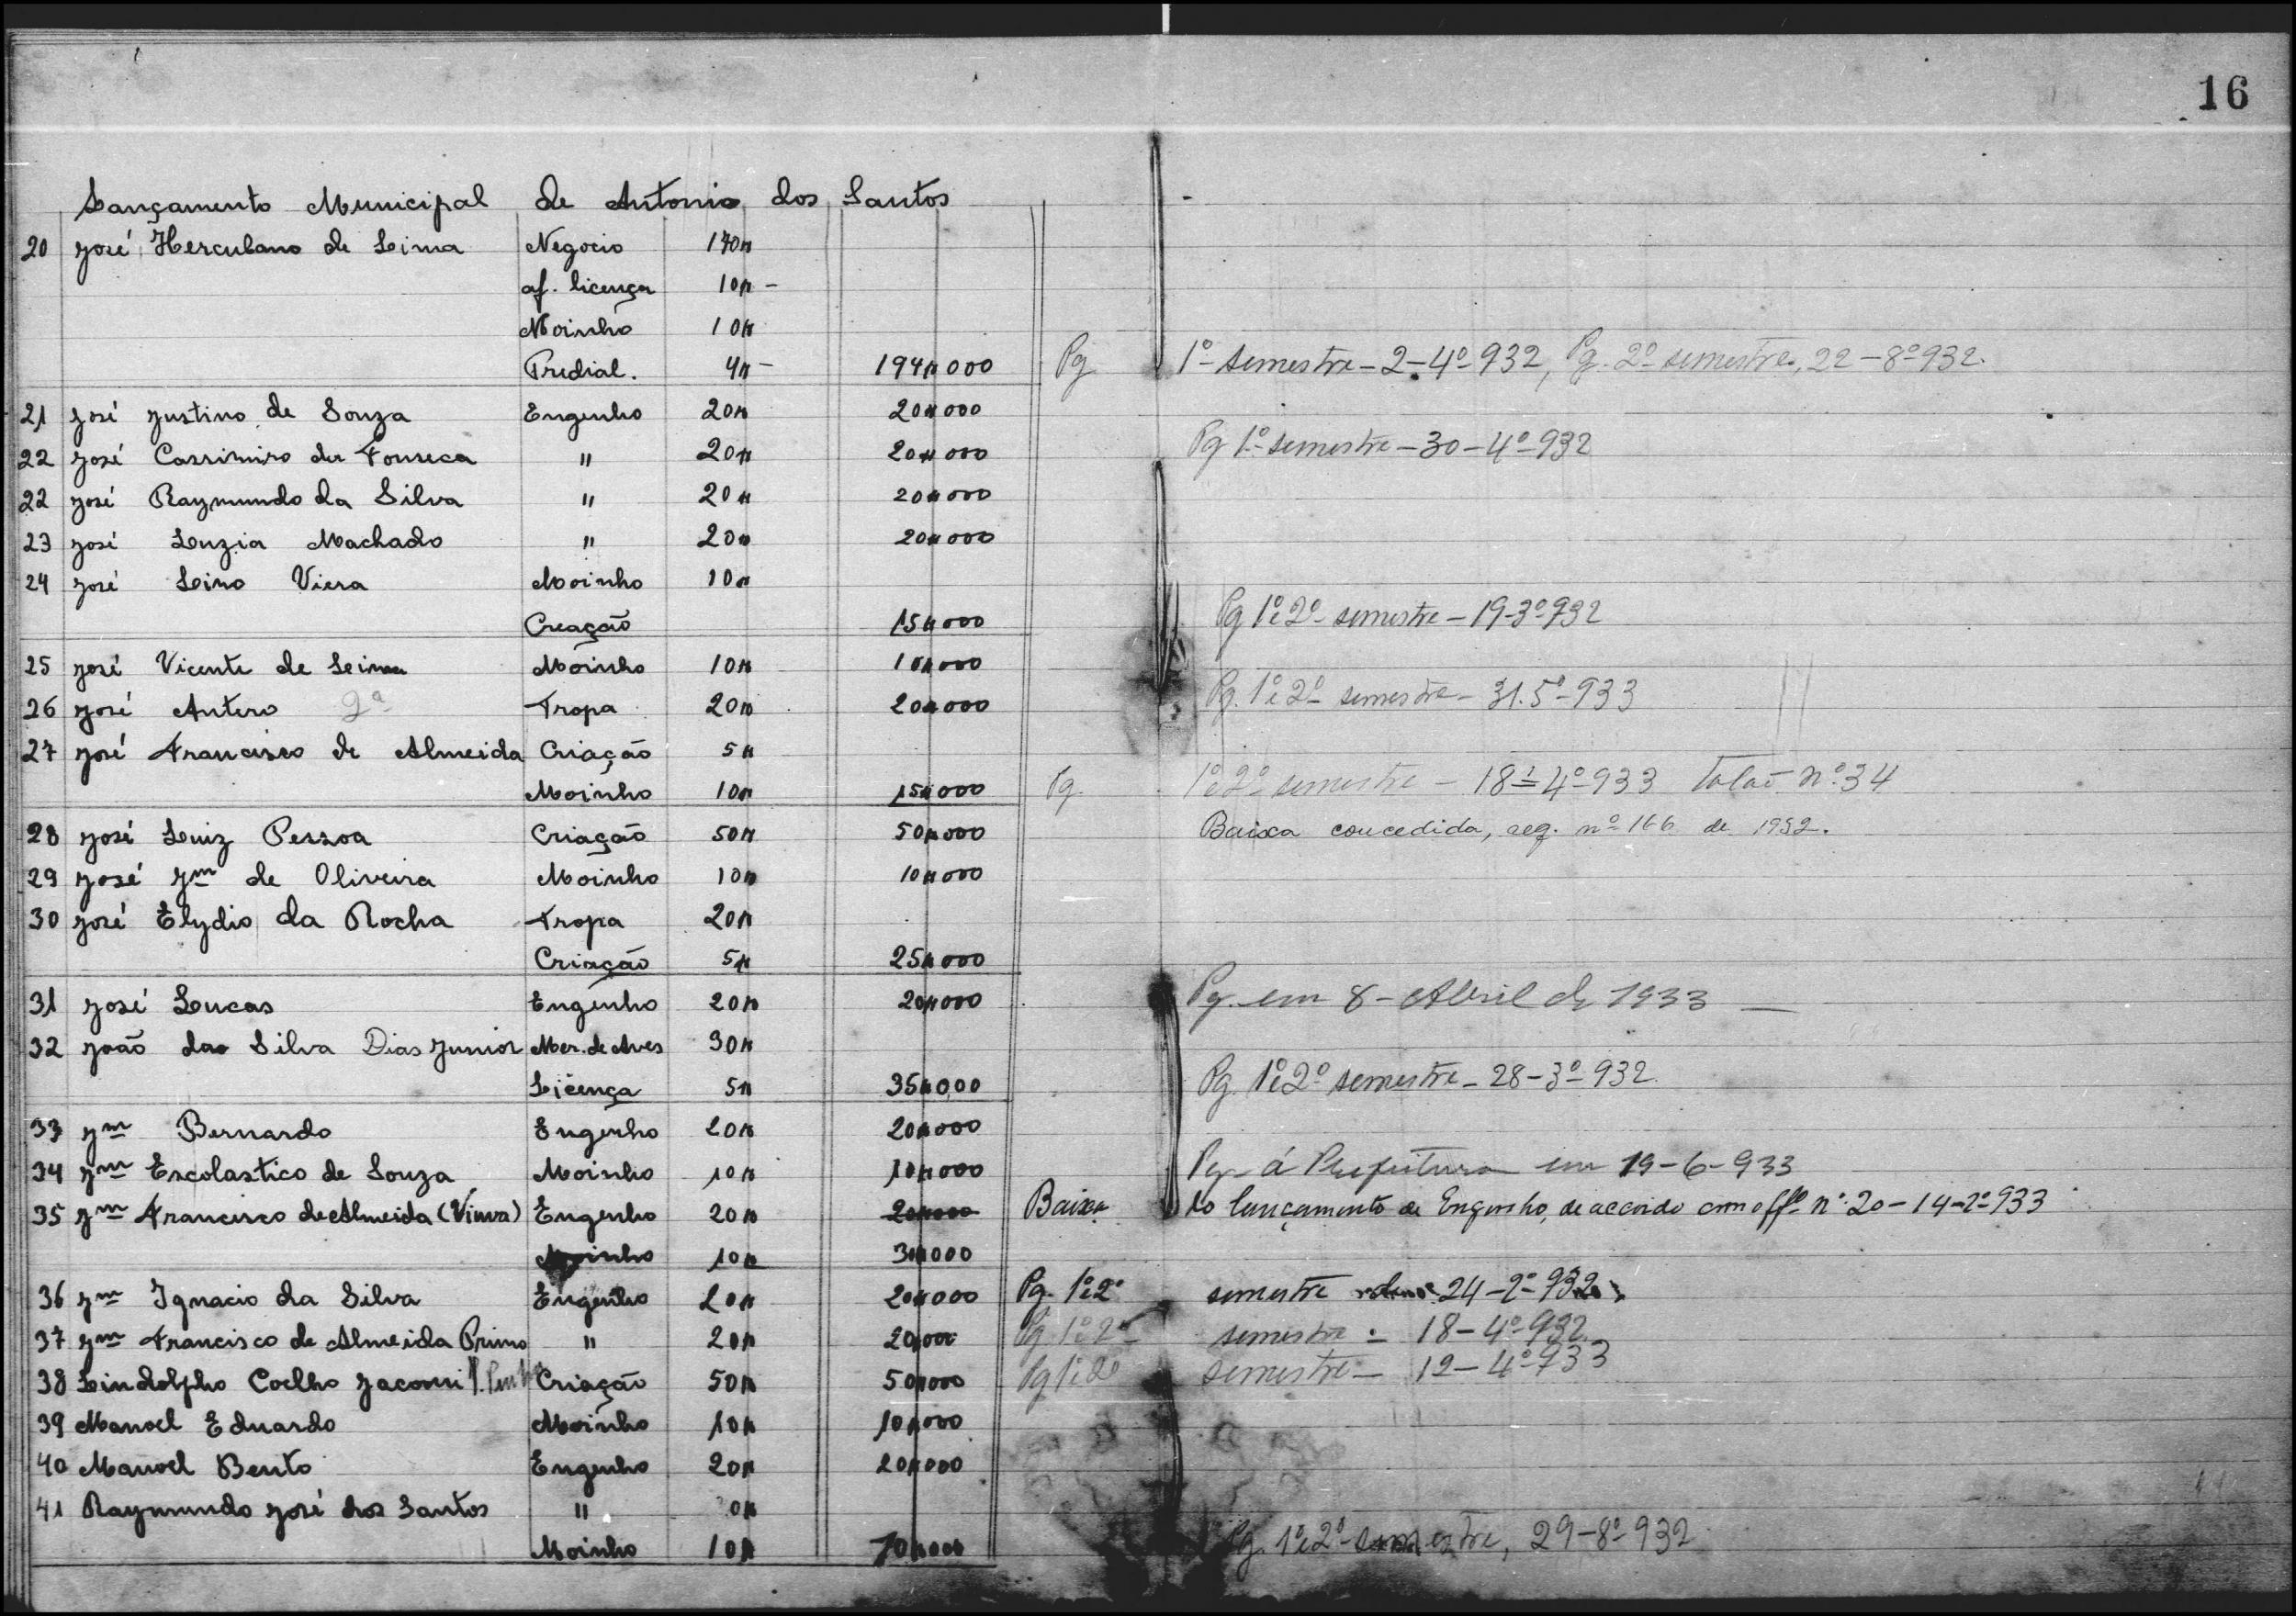 16
Lançamento Municipal de Antonio dos Santos
20 José Herculano de Lima Negocio 170$
af. licença 10$ –
Moinho 10$
Predial. 4$ – 194$000 Pg 1º semestre – 2 – 4º – 932, Pg. 2º semestre, 22 – 8º 932.
21 José Justino de Souza Engenho 20$ 20$000
22 José Cassimiro da Fonseca " 20$ 20$000 Pg 1º semestre – 30 – 4º – 932
22 José Raymundo da Silva " 20$ 20$000
23 José Luzia Machado " 20$ 20$000
24 José Lino Viera Moinho 10$
Creação 15$000 Pg 1º e 2º semestre – 19 – 3º 932
25 José Vicente de Lima Moinho 10$ 10$000
26 José Antero 2ª Tropa 20$ 20$000 Pg. 1º e 2º semestre – 31. 5º – 933
27 José Francisco de Almeida Criação 5$
Moinho 10$ 15$000 Pg. 1º e 2º semestre – 18 – 4º – 933 Talão nº 34
28 José Luiz Pessoa Criação 50$ 50$000 Baixa concedida, req. nº 166 de 1932.
29 José Jm de Oliveira Moinho 10$ 10$000
30 José Elydio da Rocha Tropa 20$
Criação 5$ 25$000
31 José Lucas Engenho 20$ 20$000 Pg. em 8 – Abril de 1933 —
32 João da Silva Dias Junior Mer. de Aves 30$
Licença 5$ 35$000 Pg. 1º e 2º semestre – 28 – 3º – 932
33 Jm Bernardo Engenho 20$ 20$000
34 Jm Escolastico de Souza Moinho 10$ 10$000 Pg á Prefeitura em 19 – 6 – 933
35 Jm Francisco de Almeida (Viuva) Engenho 20$ 20$000 Baixa do lançamento de Engenho, de accordo com offº nº 20 – 14 – 2º 933
Moinho 10$ 30$000
36 Jm Ignacio da Silva Engenho 20$ 20$000 Pg. 1º e 2º semestre 24 – 2º – 932
37 Jm Francisco de Almeida Primo " 20$ 20$000 Pg 1º e 2º semestre – 18 – 4º – 932
38 Lindolpho Coelho Jacomi Criação 50$ 50$000 Pg 1º e 2º semestre – 12 – 4º – 933
39 Manoel Eduardo Moinho 10$ 10$000
40 Manoel Bento Engenho 20$ 20$000
41 Raymundo José dos Santos " 0$
Moinho 10$ Pg. 1º e 2º semestre, 29 – 8º – 932